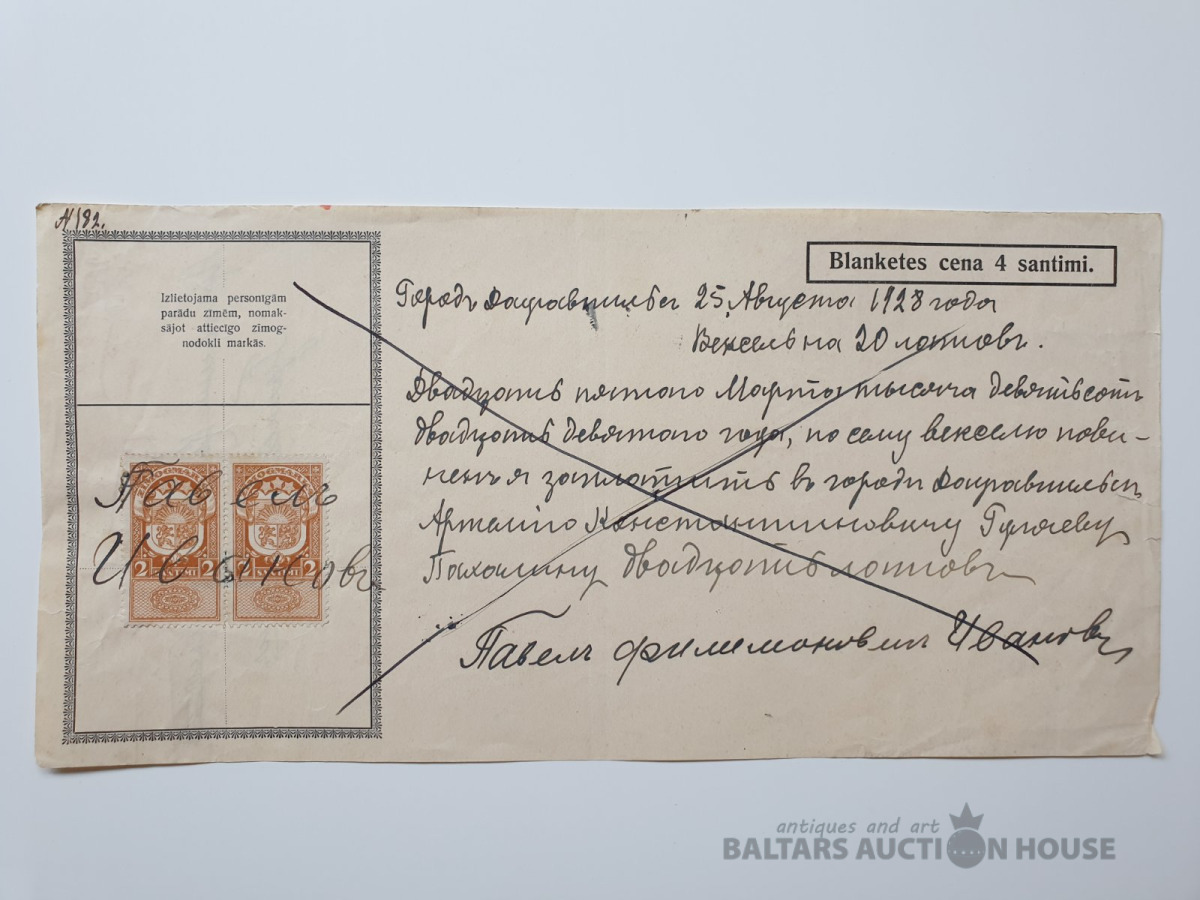 N 182.
Izlietojama personīgām
parādu zīmēm, nomak-
sājot attiecīgo zīmog-
nodokli markās.
Blanketes cena 4 santimi.
Городъ 25 Августа 1928 года
Вексель на 20 латовъ.
Двадцать пятого Марта тысяча девятьсотъ
двадцать девятого года, по сему векселю пови-
ненъ я заплатить въ городе
Константиновичу
двадцать латовъ
Павелъ Филимоновичъ Ивановъ
Павелъ
Ивановъ
2 2 2
antiques and art
BALTARS AUCTION HOUSE